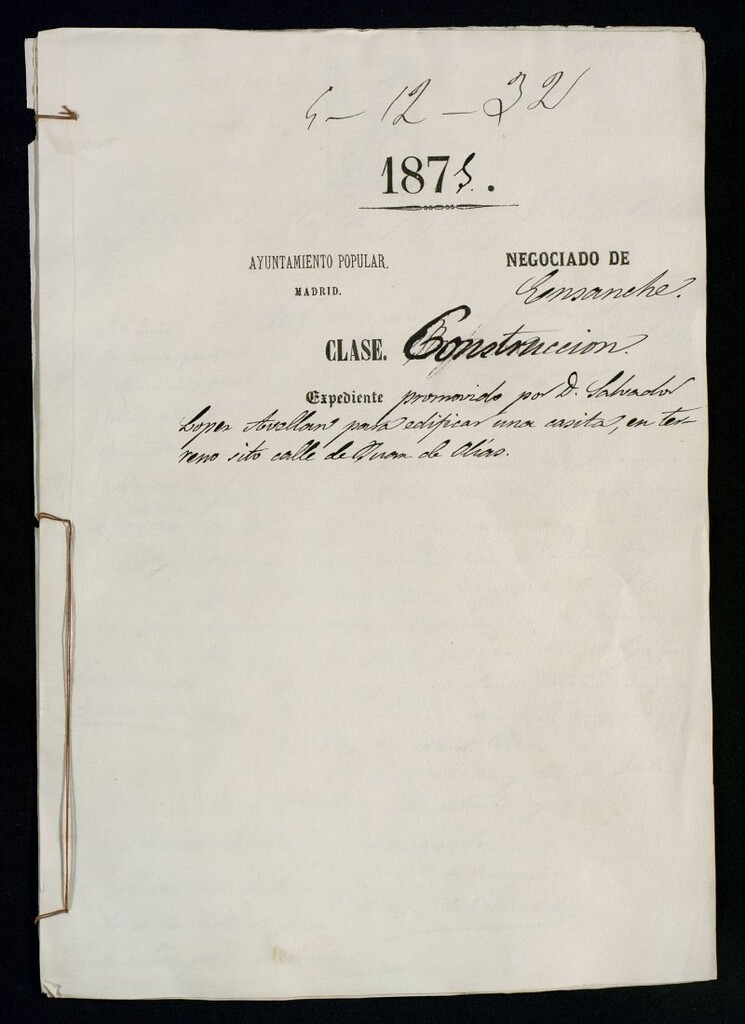 5-12-32
1875.
AYUNTAMIENTO POPULAR.
MADRID.
NEGOCIADO DE
Ensanche.
CLASE. Construccion.
Expediente promovido por D. Salvador
Lopez Avellan para edificar una casita, en ter-
reno sito calle de Juan de Olias.